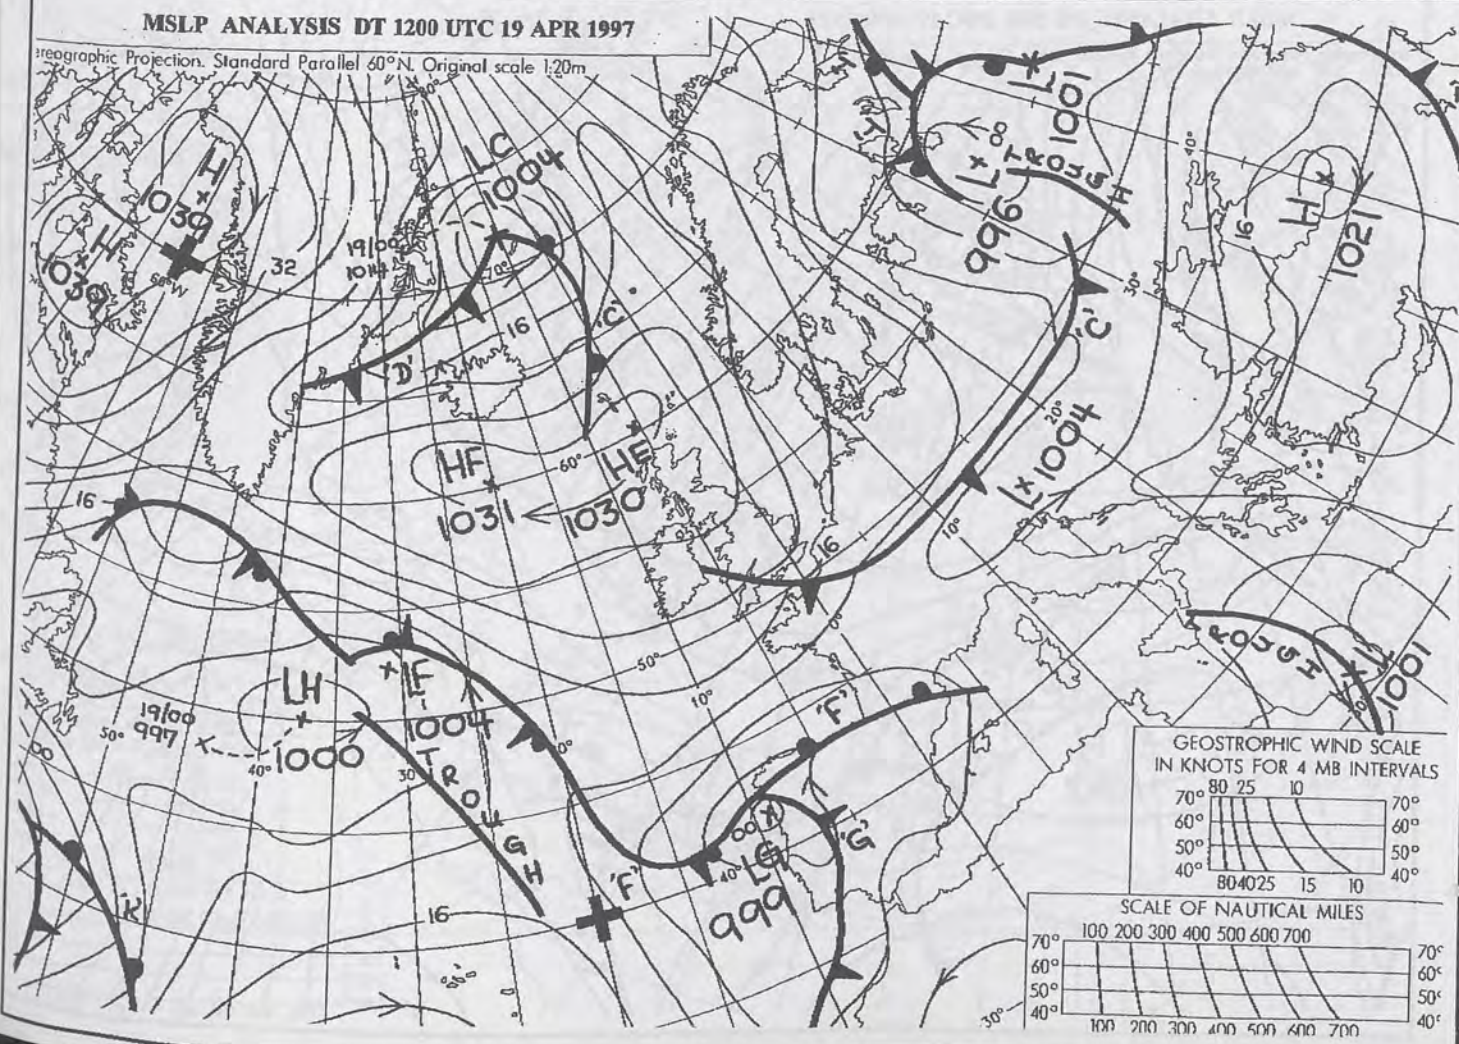 MSLP ANALYSIS DT 1200 UTC 19 APR 1997
ereographic Projection. Standard Parallel 60°N. Original scale 1:20m
80°
H
1039
H
1039
60°W
32
LC
1004
19/00
1014
70°
16
'C'
'D'
HF
1031
60°
HE
1030
'Y'
L
1001
8
L
996
TROUGH
40°
30°
16
H
1021
'C'
20°
L 1004
10°
16
0°
16
LH
1000
19/00
997
50°
40°
LF
1004
30
TROUGH
50°
10°
'F'
'F'
00
LG
999
40°
'G'
16
'K'
00
30°
TROUGH
L
1001
GEOSTROPHIC WIND SCALE
IN KNOTS FOR 4 MB INTERVALS
80 25 10
70° 70°
60° 60°
50° 50°
40° 40°
80 40 25 15 10
SCALE OF NAUTICAL MILES
100 200 300 400 500 600 700
70° 70°
60° 60°
50° 50°
40° 40°
100 200 300 400 500 600 700